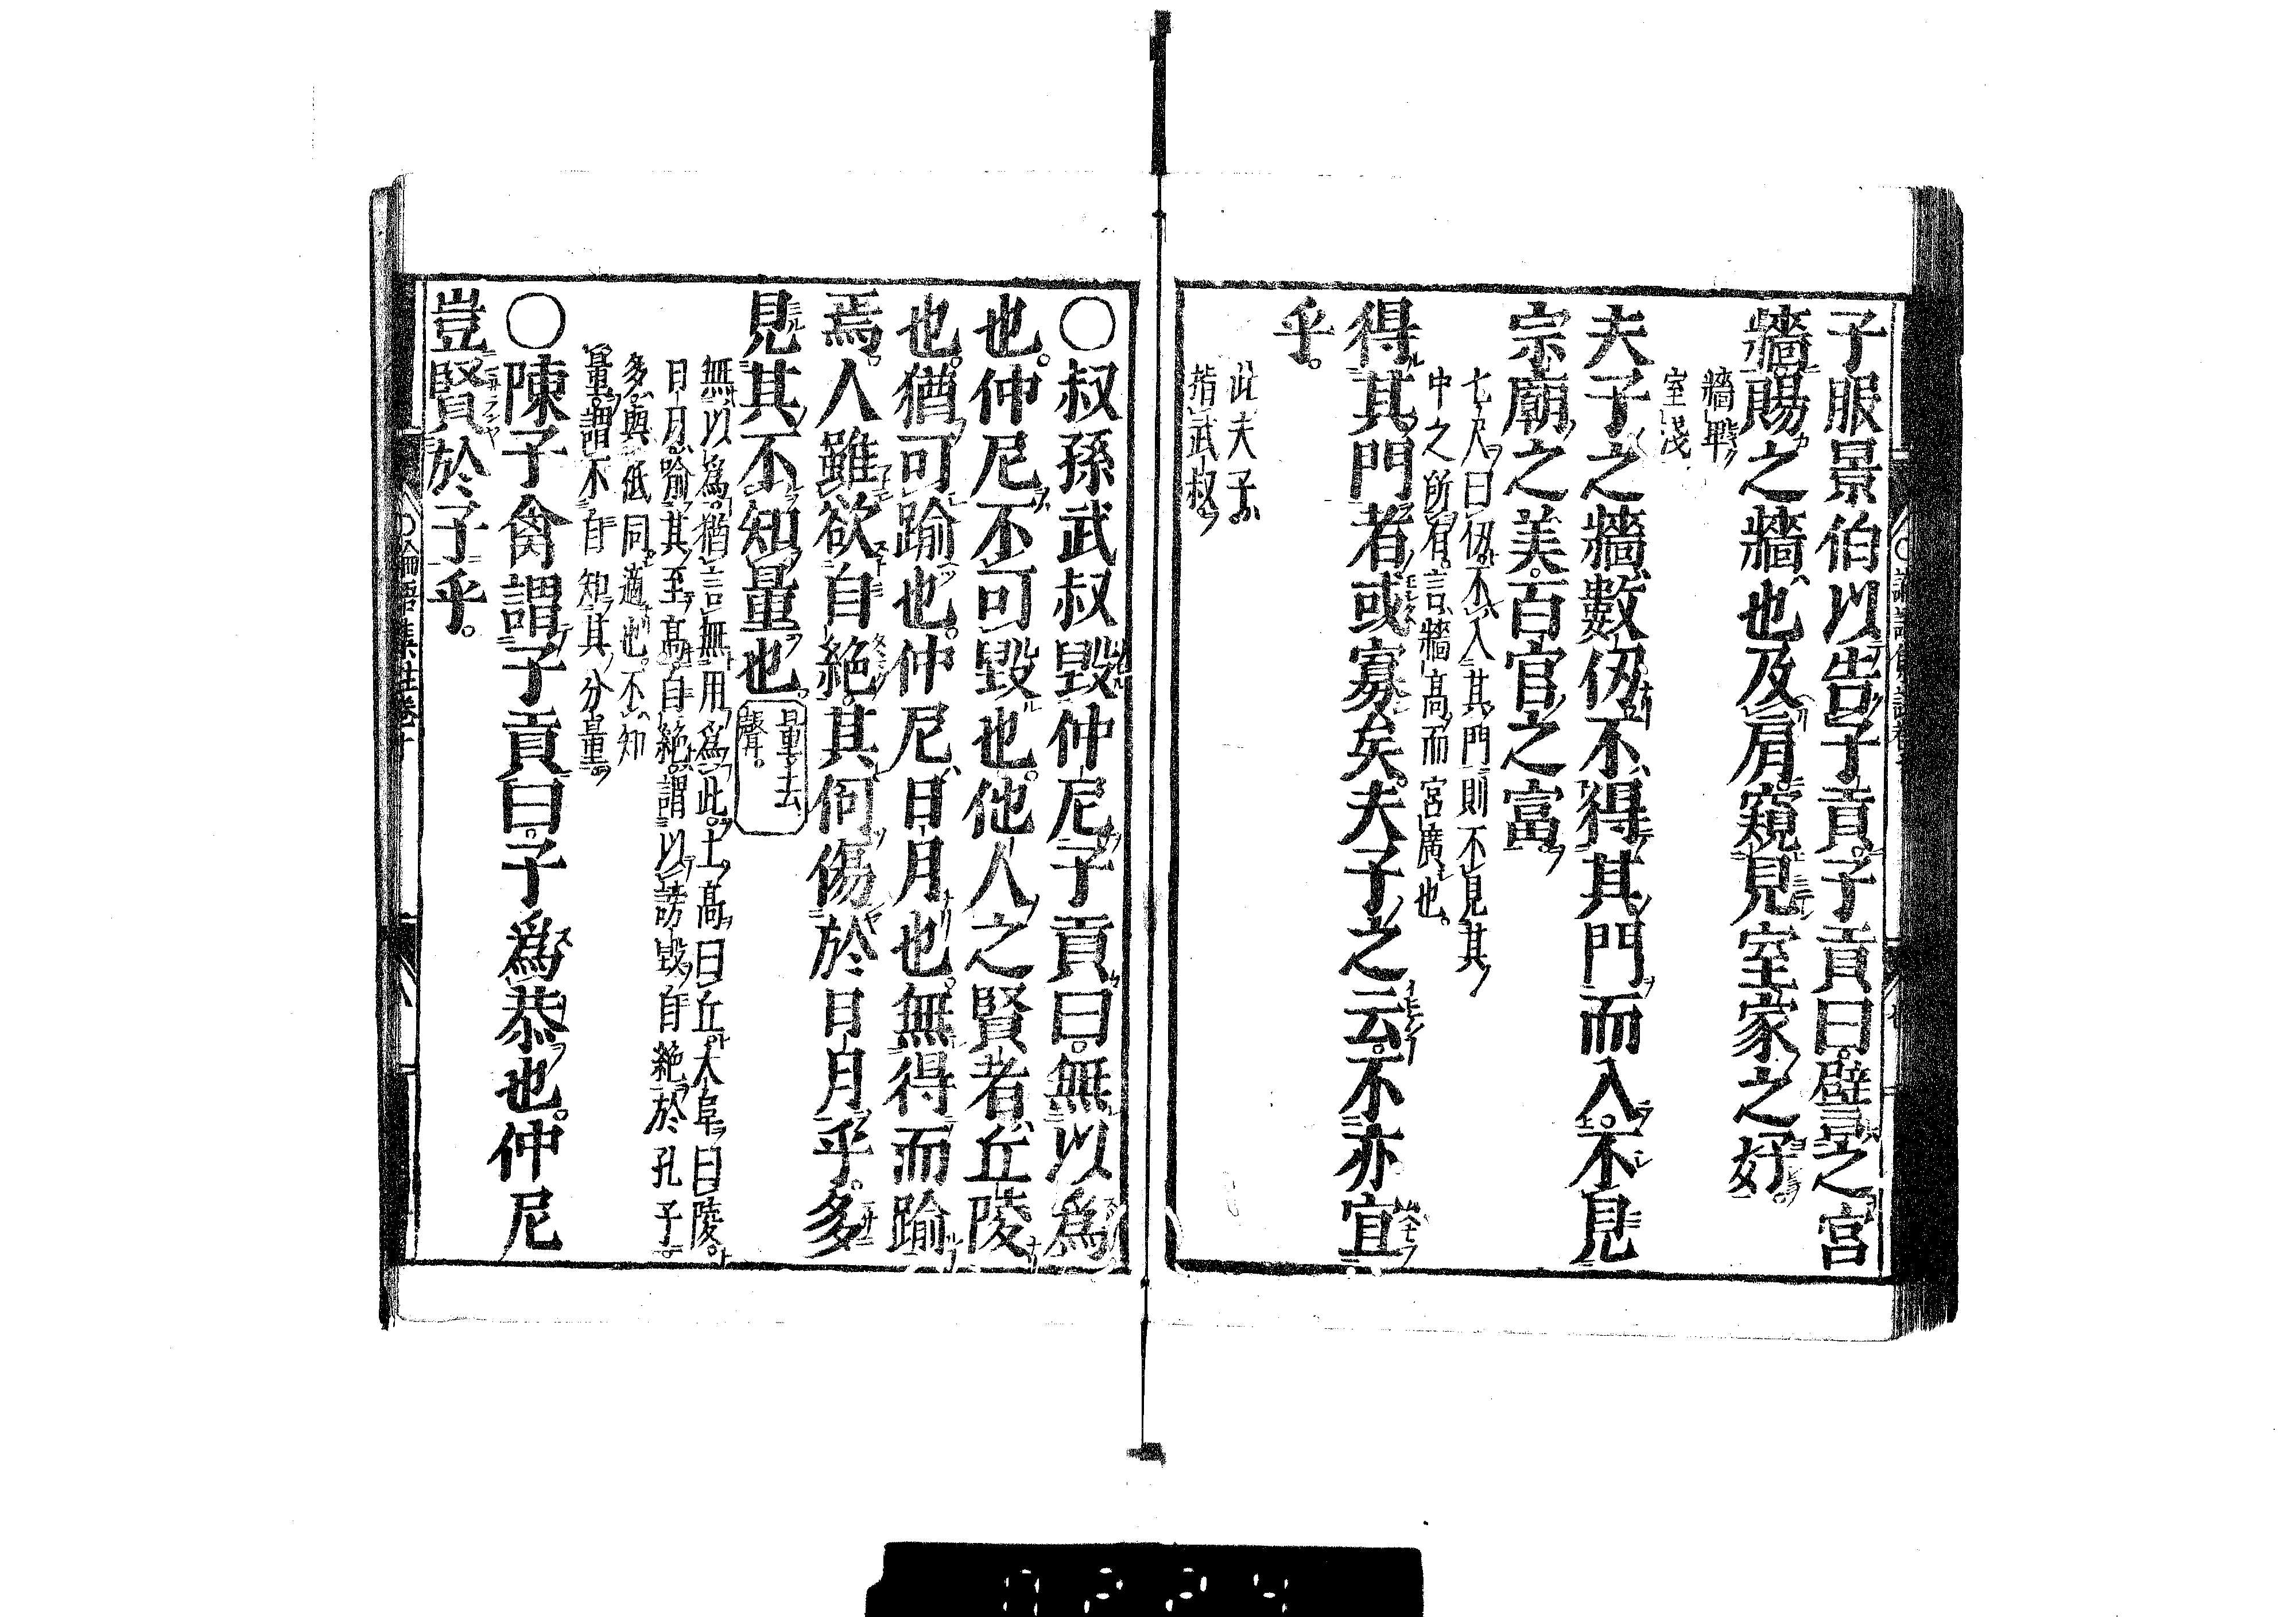 子服景伯以告子貢。子貢曰。譬之宮
牆。賜之牆也及肩。窺見室家之好。
牆卑
室淺
夫子之牆數仞。不得其門而入。不見
宗廟之美。百官之富。
七尺曰仞。不入其門則不見其
中之所有。言牆高而宮廣也。
得其門者或寡矣。夫子之云。不亦宜
乎。
此夫子。
指武叔。
○叔孫武叔毀仲尼。子貢曰。無以爲
也。仲尼不可毀也。他人之賢者。丘陵
也。猶可踰也。仲尼。日月也。無得而踰
焉。人雖欲自絶。其何傷於日月乎。多
見其不知量也。
量去
聲。
無以爲。猶言無用爲此。土高曰丘。大阜曰陵。
日月。喻其至高。自絶。謂以謗毀自絶於孔子。
多與祗同。適也。不知
量。謂不自知其分量。
○陳子禽謂子貢曰。子爲恭也。仲尼
豈賢於子乎。
○論語集註卷十